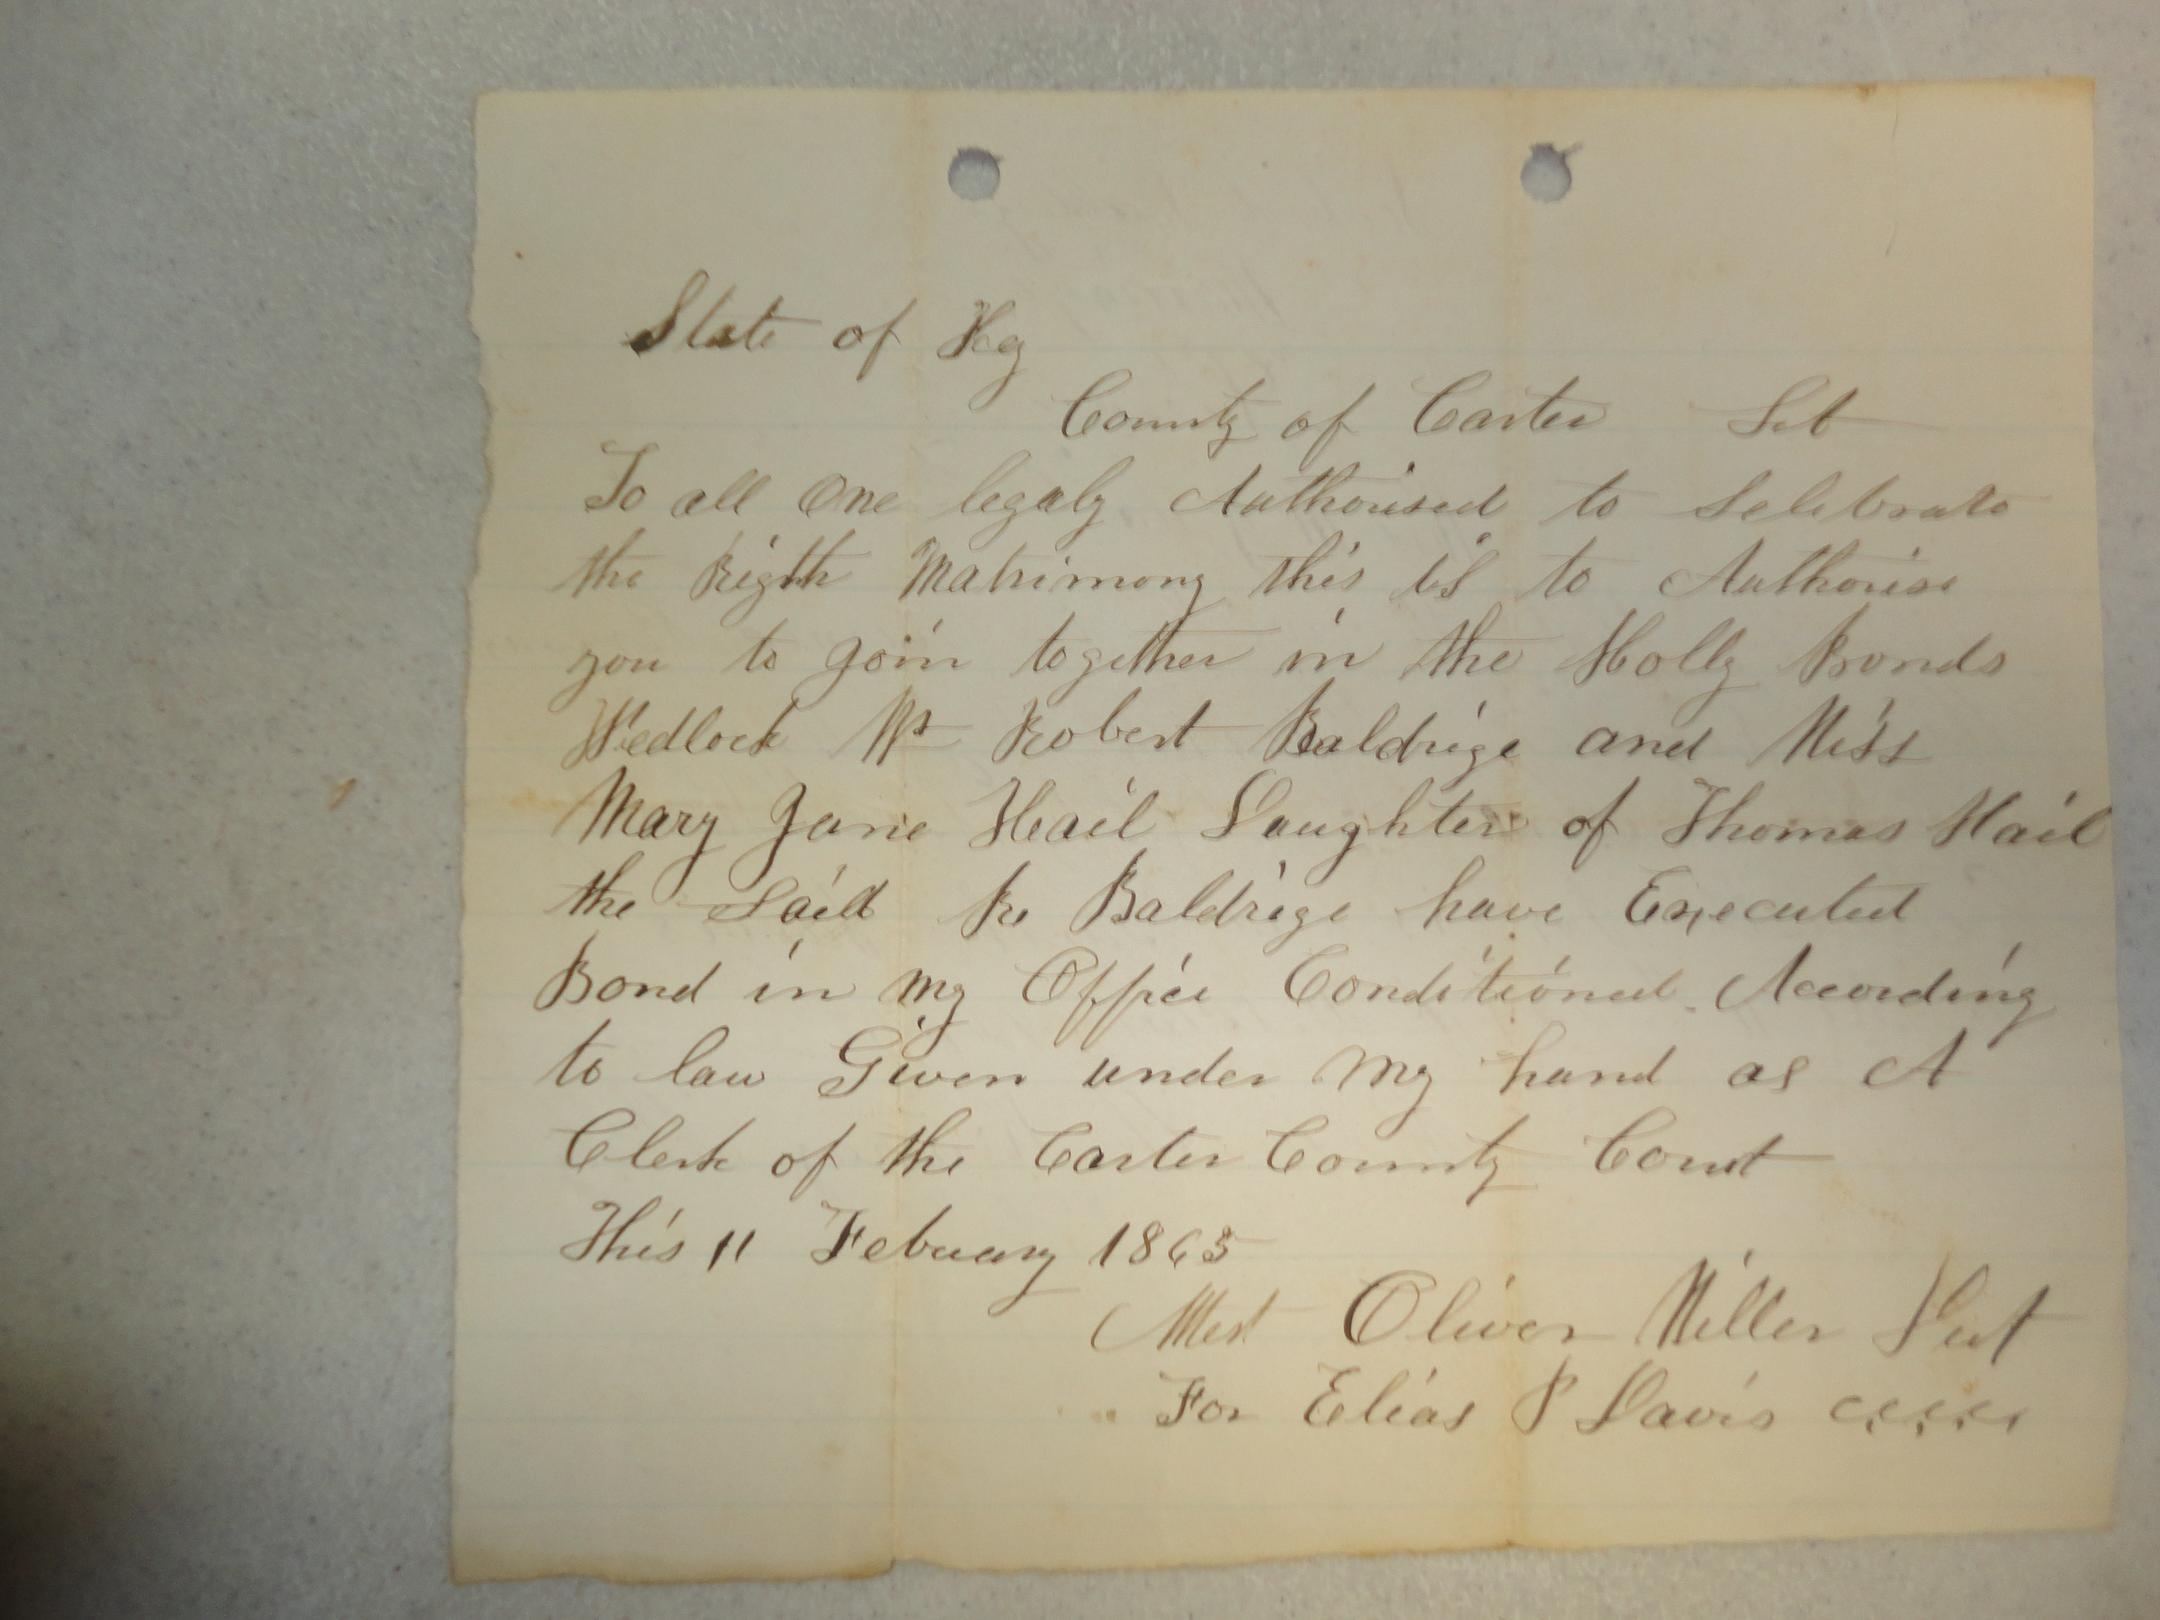 State of Ky
County of Carter Sct
To all One legaly Authorised to Selebrate
the Rigth Matrimony this is to Authorise
you to join together in the Holly Bonds
Wedlock Mr Robert Baldrige and Miss
Mary Jane Hail Daughter of Thomas Hail
the Said R Baldrige have Executed
Bond in my Office Conditioned According
to law Given under my hand as A
Clerk of the Carter County Court
This 11 Febuary 1865
Attest Oliver Miller Dept
For Elias P Davis CCCCC